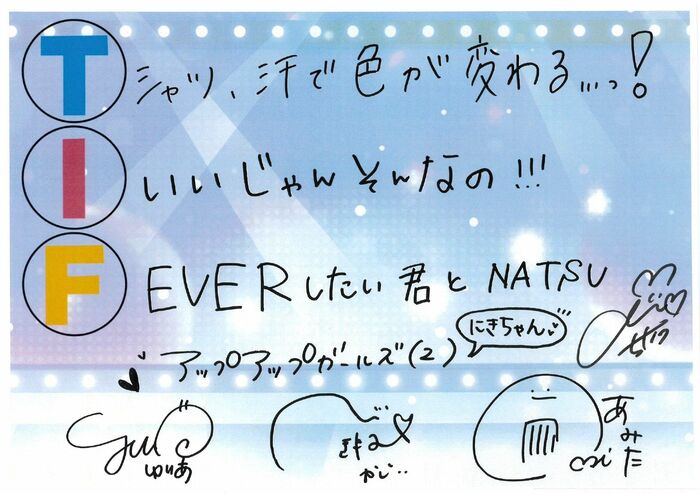 Tシャツ、汗で色が変わる...っ!
Iいいじゃんそんなの!!!
FEVERしたい君とNATSU
アップアップガールズ(2)
にきちゃん
ちさっ
ゆいあ
かじ
あみた